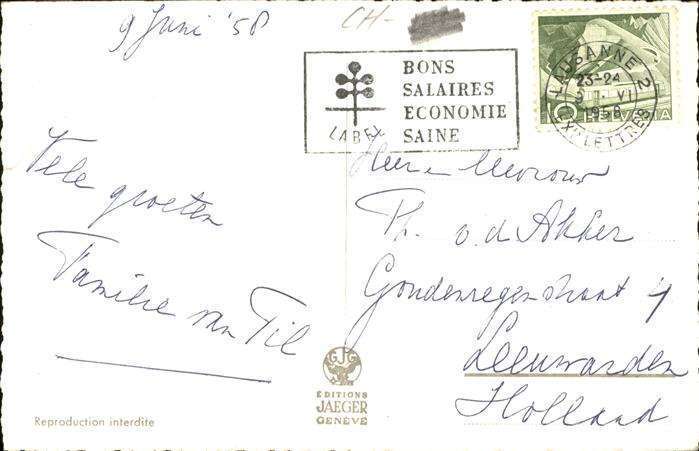 9 Juni '58
CH-
BONS
SALAIRES
ECONOMIE
SAINE
LABEL
LAUSANNE 2
23-24
VI
1958
EXP. LETTRES
10 HELVETIA
Vele groeten
Familie van Til
Heer en Mevrouw
Th. v.d. Akker
Goudenregenstraat
Leeuwarden
Holland
GJG
EDITIONS
JAEGER
GENÈVE
Reproduction interdite